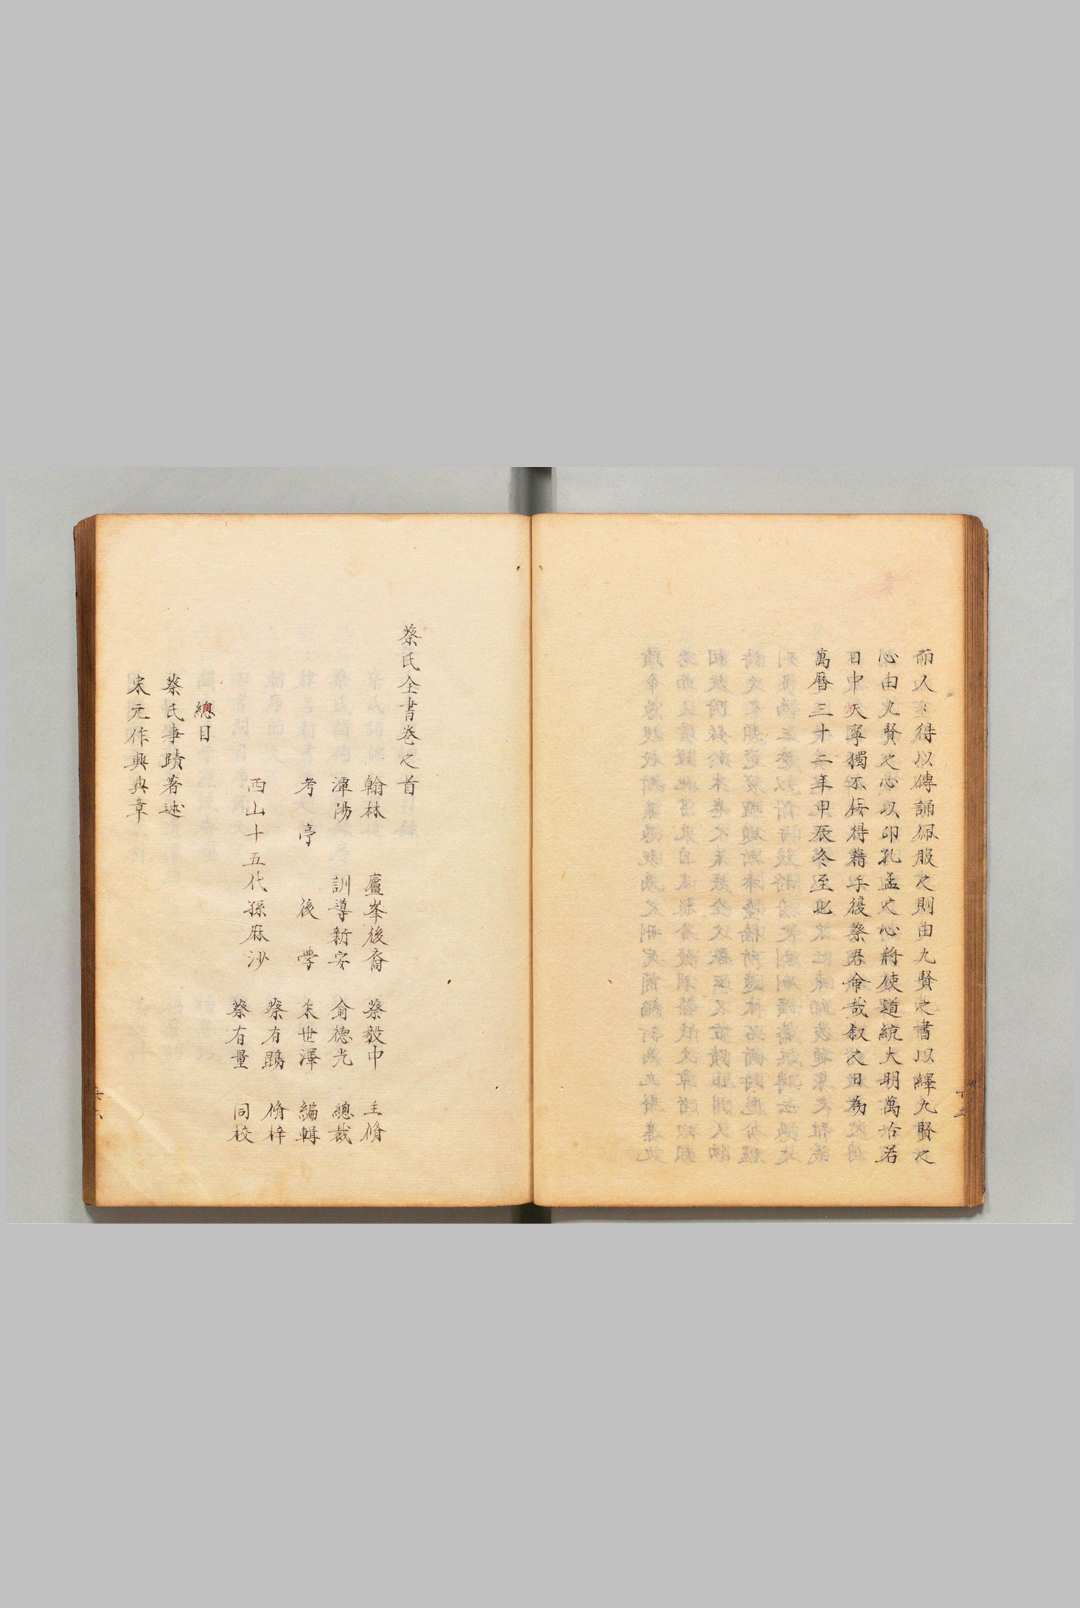 而人人得以傳誦佩服之則由九賢之書以繹九賢之
心由九賢之心以印孔孟之心將使道統大明萬古若
日中天寧獨不佞得藉手後蔡君命哉叙之日為
萬曆三十二年甲辰冬至也
蔡氏全書卷之首
翰林 廬峯後裔 蔡毅中 主脩
潭陽 訓導新安 俞德光 總裁
考亭後學 朱世澤 編輯
西山十五代孫麻沙 蔡有鵾 脩梓
蔡有量 同校
總目
蔡氏事蹟著述
宋元作興典章